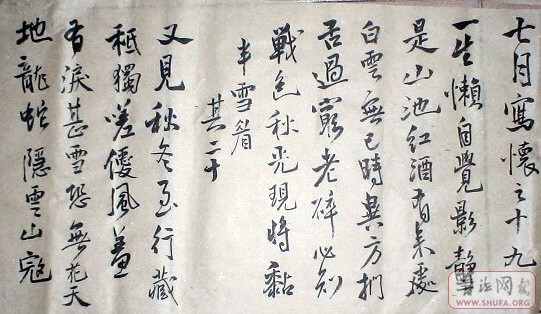 七月寫懷之十九
一生懶自覺影靜
是山池紅酒有来處
白雲無已時異方捫
舌過窮老碎必知
戰色秋光現將黏
半雪眉
其二十
又見秋冬至行藏
秪獨嗟優風羞
有淚甚雪恐無花天
地龍蛇隱雲山寇
書法网
WWW.SHUFA.ORG